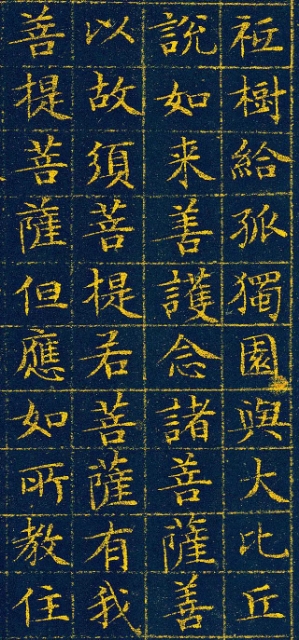 祇樹給孤獨園與大比丘
說如来善護念諸菩薩善
以故須菩提若菩薩有我
菩提菩薩但應如所教住